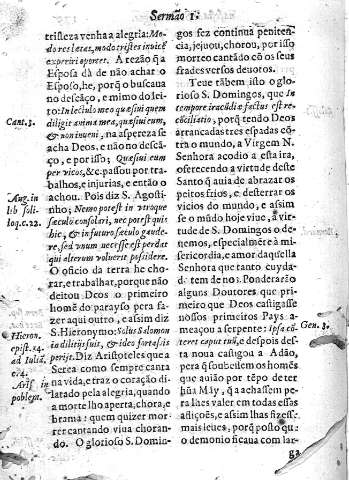 Sermão 1.
tristeza venha a alegria: Mo-
do res lætas, modo tristes invicẽ
experiri oportet. A rezão q̃ a
Esposa dà de não achar o
Esposo, he, porq̃ o buscaua
no descãço, e mimo do lei-
to: In lectulo meo quæsiui quem
diligit anima mea, quæsiui eum,
& non inueni, na aspereza se
acha Deos, e não no desca-
ço, e por isso; Quæsiui eum
per vicos, &c. passou por tra-
balhos, e injurias, e então o
achou. Pois diz S. Agosti-
nho; Nemo potest in vtroque
sæculo consolari, nec potest quis
hic, & in futuro sæculo gaude-
re, sed vnum necesse est perdat
qui alterum voluerit possidere.
O officio da terra he cho-
rar, e trabalhar, porque não
deitou Deos o primeiro
homẽ do parayso pera fa-
zer aqui outro, e assim diz
S. Hieronymo: Solus Salomon
in dilitijs fuit, & ideo forsasis
perijt. Diz Aristoteles que a
Serea como sempre canta
na vida, e traz o coração di-
latado pela alegria, quando
a morte lho aperta, chora, e
brama: quem quizer mor-
rer cantando viua choran-
do. O glorioso S. Domin-
Cant. 3.
Aug. in
lib soli-
loq. c. 22.
Hieron.
epist. 14.
ad Iuliã.
c. 4.
Arist. in
poblem.
gos fez continua peniten-
cia, jejuou, chorou, por isso
morreo cantãdo cõ os seus
frades versos deuotos.
Teue tãbem isto o glo-
rioso S. Domingos, que In
tempore iracũdiæ factus est re-
cõciliatio; porq̃ tendo Deos
arrancadas tres espadas cõ-
tra o mundo, a Virgem N.
Senhora acodio a esta ira,
oferecendo a virtude deste
Santo q̃ auia de abrazar os
peitos frios, e desterrar os
vicios do mundo, e assim
se o mũdo hoje viue, á vir-
tude de S. Domingos o de-
uemos, especialmẽte à mi-
sericordia, e amor daquella
Senhora que tanto cuyda-
do tem de nos. Ponderarão
alguns Doutores que pri-
meiro que Deos castigasse
nossos primeiros Pays a-
meaçou a serpente: Ipsa cõ-
teret caput tuũ, e despois des-
ta noua castigou a Adão,
pera q̃ soubessem os homẽs
que auião por tẽpo de ter
hũa Mãy, q̃ a achassem pe-
ra lhes valer em todas essas
afliçoẽs, e assim lhas fizesse
mais leues, porq̃ posto que
o demonio ficaua com lar-
Gen. 3.
ga